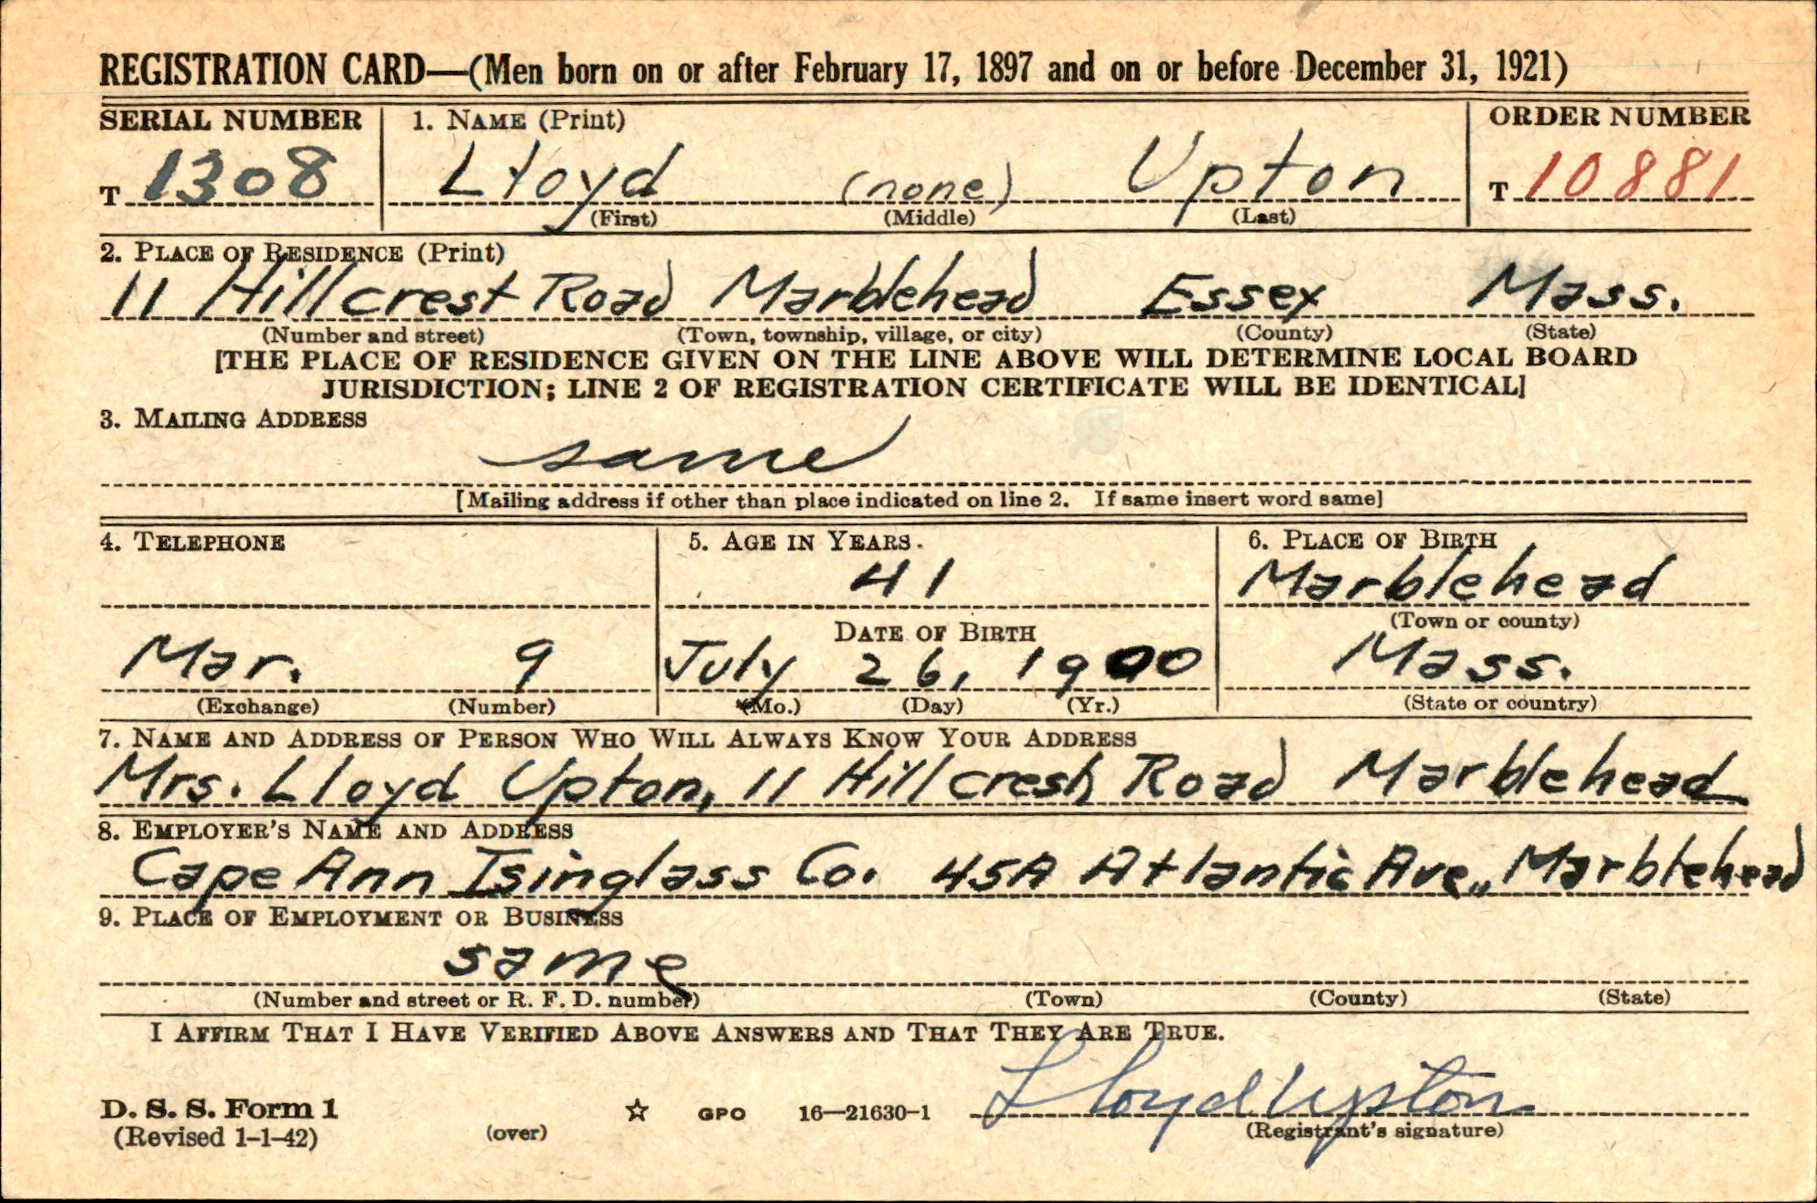 REGISTRATION CARD—(Men born on or after February 17, 1897 and on or before December 31, 1921)
SERIAL NUMBER 1. NAME (Print) ORDER NUMBER
T 1308 Lloyd (none) Upton T 10881
(First) (Middle) (Last)
2. PLACE OF RESIDENCE (Print)
11 Hillcrest Road Marblehead Essex Mass.
(Number and street) (Town, township, village, or city) (County) (State)
[THE PLACE OF RESIDENCE GIVEN ON THE LINE ABOVE WILL DETERMINE LOCAL BOARD
JURISDICTION; LINE 2 OF REGISTRATION CERTIFICATE WILL BE IDENTICAL]
3. MAILING ADDRESS
same
[Mailing address if other than place indicated on line 2. If same insert word same]
4. TELEPHONE 5. AGE IN YEARS 6. PLACE OF BIRTH
41 Marblehead
DATE OF BIRTH (Town or county)
Mar. 9 July 26, 1900 Mass.
(Exchange) (Number) (Mo.) (Day) (Yr.) (State or country)
7. NAME AND ADDRESS OF PERSON WHO WILL ALWAYS KNOW YOUR ADDRESS
Mrs. Lloyd Upton, 11 Hillcrest Road Marblehead
8. EMPLOYER'S NAME AND ADDRESS
Cape Ann Isinglass Co. 45A Atlantic Ave., Marblehead
9. PLACE OF EMPLOYMENT OR BUSINESS
same
(Number and street or R. F. D. number) (Town) (County) (State)
I AFFIRM THAT I HAVE VERIFIED ABOVE ANSWERS AND THAT THEY ARE TRUE.
D. S. S. Form 1 ☆ GPO 16—21630-1 Lloyd Upton
(Revised 1-1-42) (over) (Registrant's signature)